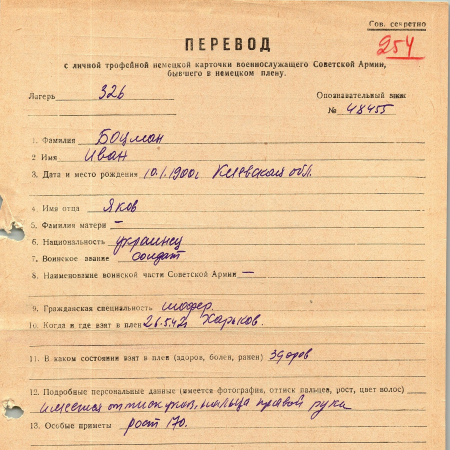 Сов. секретно
254
ПЕРЕВОД
с личной трофейной немецкой карточки военнослужащего Советской Армии,
бывшего в немецком плену.
Лагерь 326
Опознавательный знак
№ 48455
1. Фамилия Боцман
2 Имя Иван
3. Дата и место рождения 10.1.1900г Киевская обл.
4. Имя отца Яков
5. Фамилия матери —
6. Национальность украинец
7. Воинское звание солдат
8. Наименование воинской части Советской Армии —
9. Гражданская специальность шофер.
10. Когда и где взят в плен 26.5.42г Харьков.
11. В каком состоянии взят в плен (здоров, болен, ранен) здоров
12. Подробные персональные данные (имеется фотография, оттиск пальцев, рост, цвет волос)
имеется оттиск пальца правой руки
13. Особые приметы рост 170.